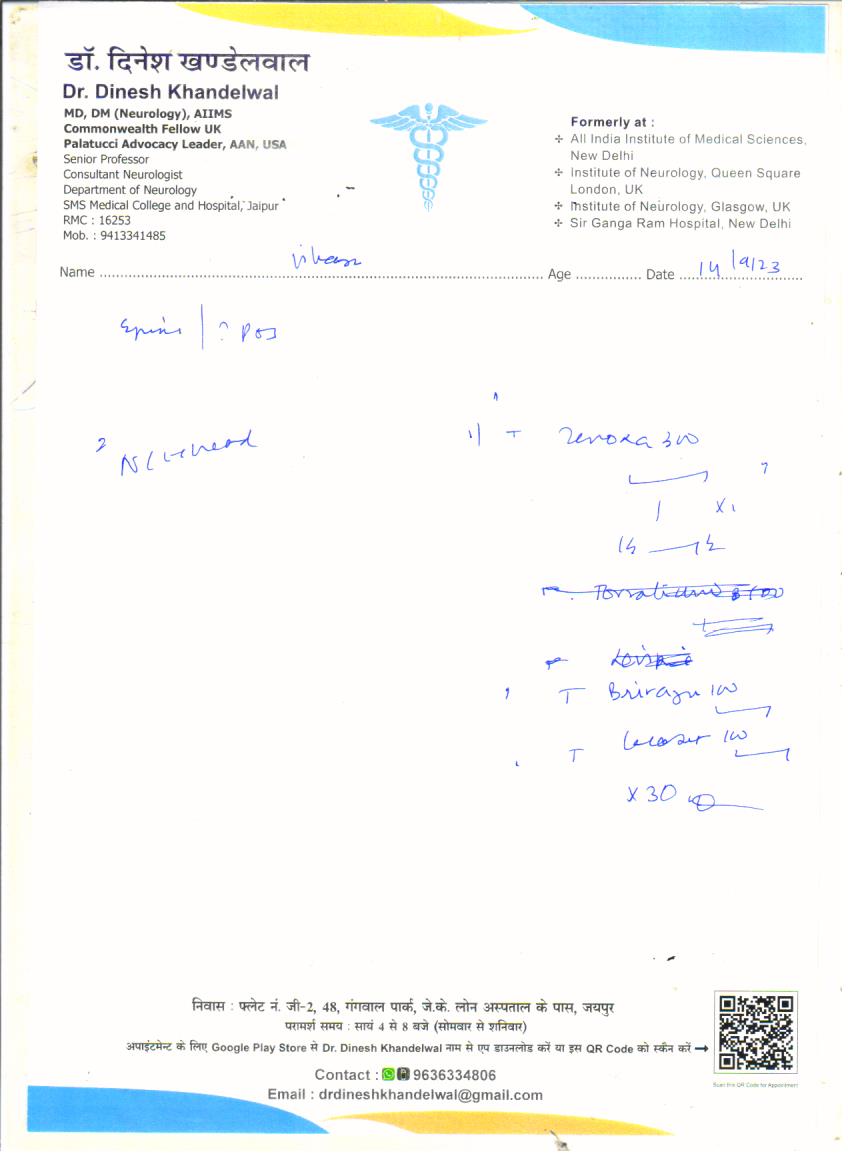 डॉ. दिनेश खण्डेलवाल
Dr. Dinesh Khandelwal
MD, DM (Neurology), AIIMS
Commonwealth Fellow UK
Palatucci Advocacy Leader, AAN, USA
Senior Professor
Consultant Neurologist
Department of Neurology
SMS Medical College and Hospital, Jaipur
RMC : 16253
Mob. : 9413341485
Formerly at :
All India Institute of Medical Sciences,
New Delhi
Institute of Neurology, Queen Square
London, UK
Institute of Neurology, Glasgow, UK
Sir Ganga Ram Hospital, New Delhi
Name Age Date 14/9/23
T Zenoxa 300
1 x1
T 100
T 100
x 30
निवास : फ्लेट नं. जी-2, 48, गंगवाल पार्क, जे.के. लोन अस्पताल के पास, जयपुर
परामर्श समय : सायं 4 से 8 बजे (सोमवार से शनिवार)
अपाइंटमेन्ट के लिए Google Play Store से Dr. Dinesh Khandelwal नाम से एप डाउनलोड करें या इस QR Code को स्कैन करें
Contact : 9636334806
Email : drdineshkhandelwal@gmail.com
Scan this QR Code for Appointment